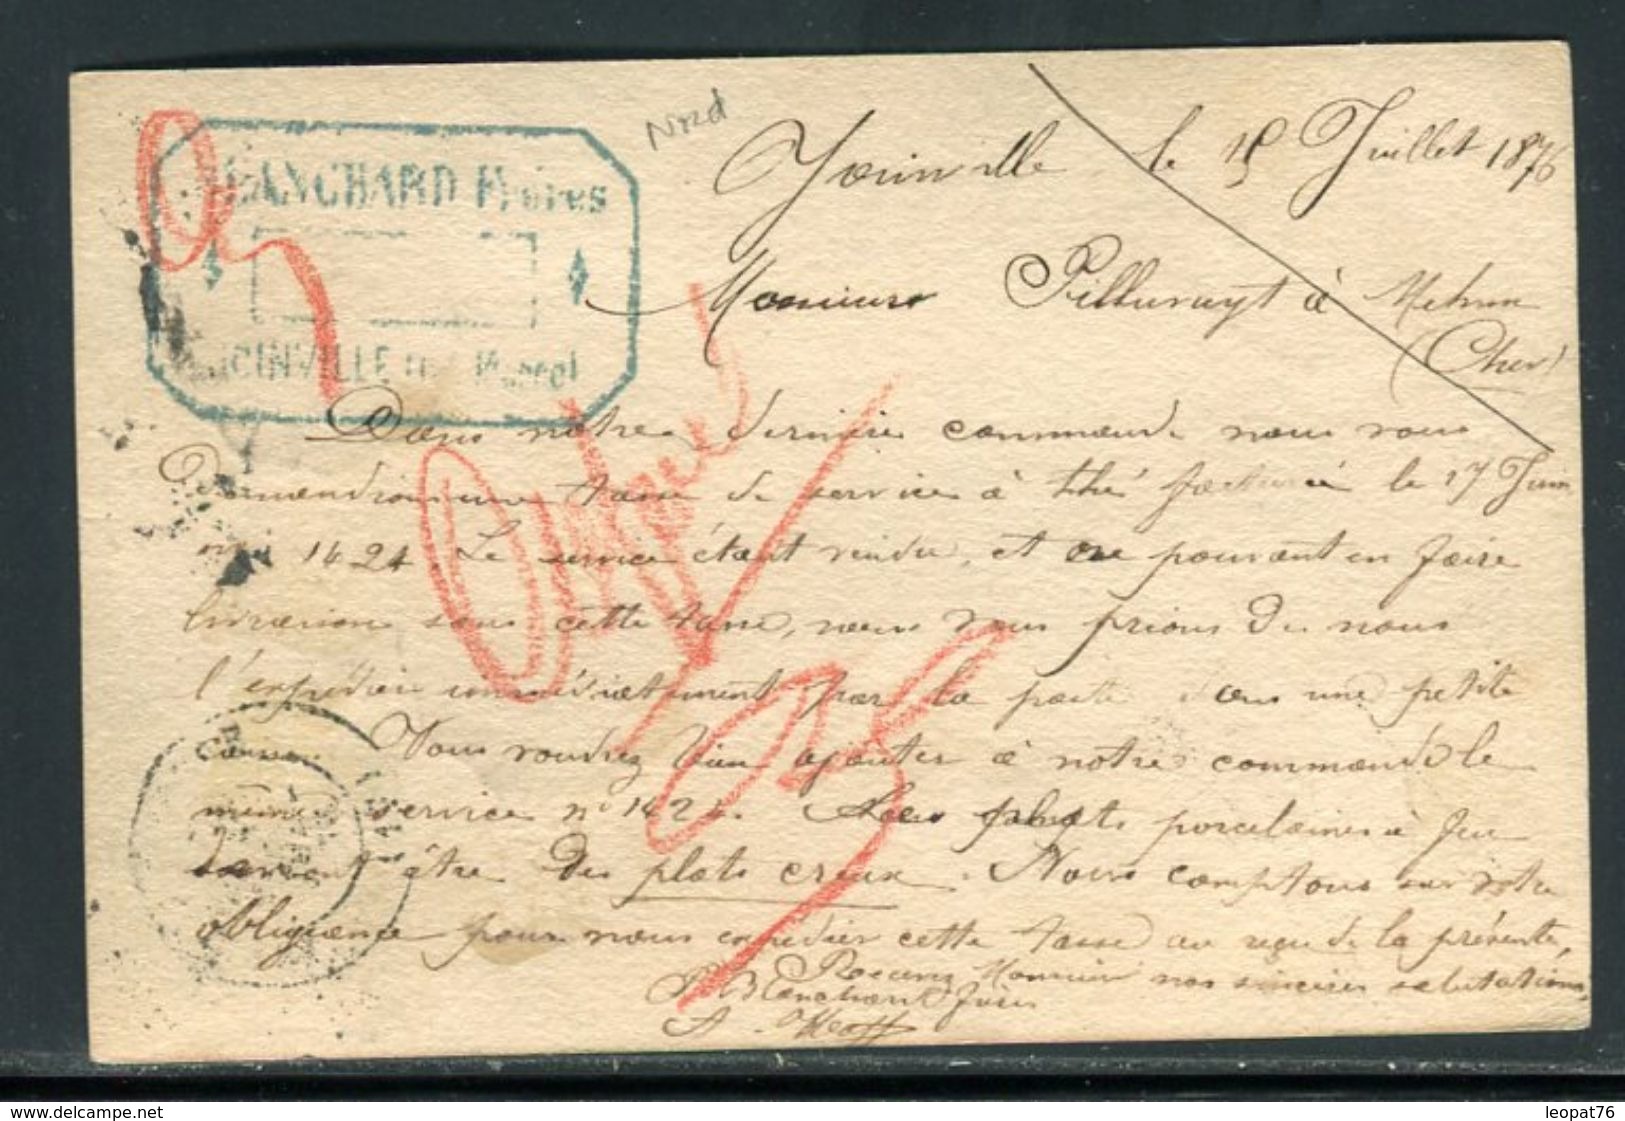 Nord
BLANCHARD Frères
JOINVILLE
Joinville le 15 Juillet 1876
Monsieur Pillivuyt à Mehun
(Cher)
Dans notre dernière commande nous vous
demandions une tasse de service à thé facturée le 17 Juin
1424 Le service étant vendu, et ne pouvant en faire
livraison sans cette tasse, nous vous prions de nous
l'expédier immédiatement par la poste dans une petite
caisse. Vous voudrez bien ajouter à notre commande le
même service n° 1424. Les plats porcelaines à feu
devront être des plats creux. Nous comptons sur votre
obligeance pour nous expédier cette tasse au reçu de la présente,
Recevez Monsieur nos sincères salutations,
P. Blanchard frères
A.
delcampe.net
leopat76